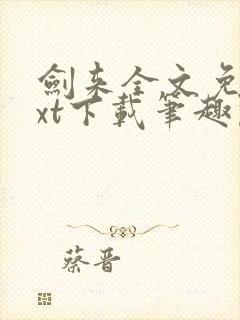 劍来全文免
xt下載筆趣
蔡晋